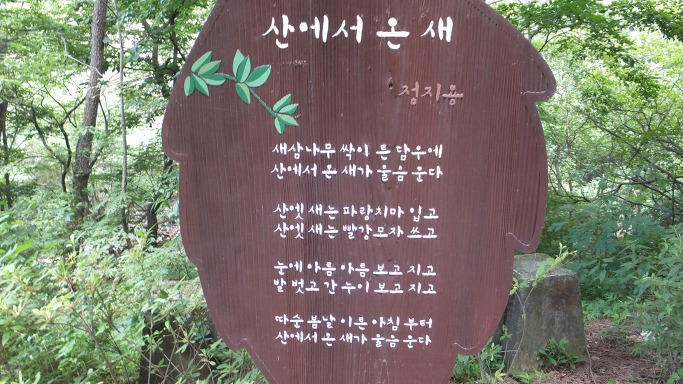 산에서 온 새
정지용
새삼나무 싹이 튼 담우에
산에서 온 새가 울음 운다
산엣 새는 파랑치마 입고
산엣 새는 빨강모자 쓰고
눈에 아름 아름 보고 지고
발 벗고 간 누이 보고 지고
따순 봄날 이른 아침 부터
산에서 온 새가 울음 운다